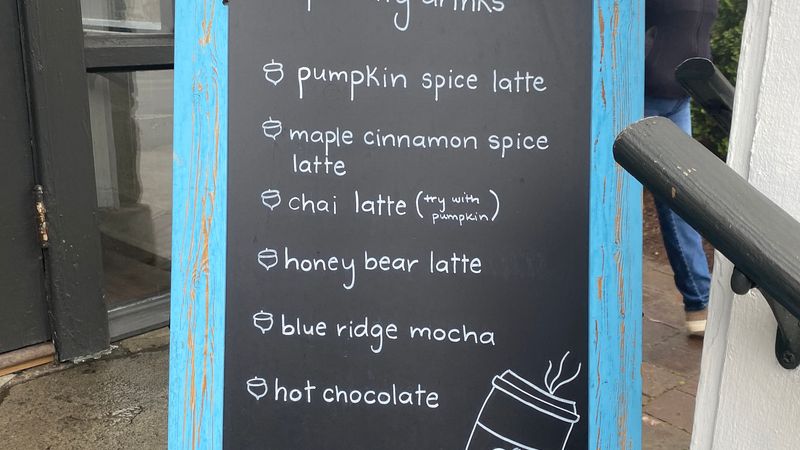 drinks
pumpkin spice latte
maple cinnamon spice
latte
chai latte (try with
pumpkin)
honey bear latte
blue ridge mocha
hot chocolate